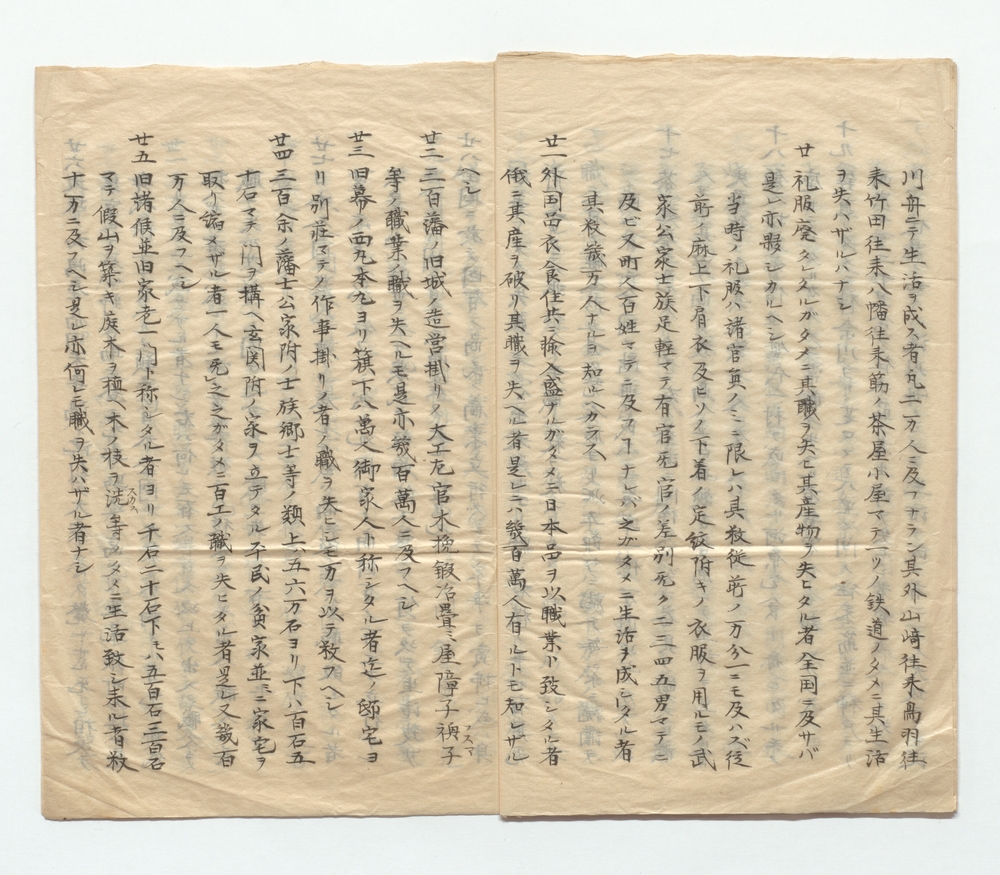 川舟ニテ生活ヲ成ス者凡二万人ニ及フナラン其外山崎往来鳥羽往
来竹田往来八幡往来筋ノ茶屋小屋マテ一ツノ鉄道ノタメニ其生活
ヲ失ハザルハナシ
廿 礼服廃タレタルガタメニ其職ヲ失ヒ其産物ヲ失ヒタル者全国ニ及サバ
是レ亦夥シカルヘシ
当時ノ礼服ハ諸官員ノミニ限レハ其数従前ノ万分一ニモ及ハズ従
前ノ麻上下肩衣及ヒソノ下着ノ定紋附キノ衣服ヲ用ルモノ武
家公家士族足軽マテ有官无官ノ差別无ク二三四五男マテニ
及ビ又町人百姓マテニ及フヿナレバ之ガタメニ生活ヲ成シタル者
其数幾万人ナルヲ知ルヘカラス
廿一 外国品衣食住共ニ輸入盛ナルガタメニ日本品ヲ以職業ト致シタル者
俄ニ其産ヲ破リ其職ヲ失ヘル者是レ亦幾百萬人有ルトモ知レザル
ヘシ
廿二 三百藩ノ旧城ノ造営掛リノ大工左官木挽鍛冶畳ミ屋障子襖子フスマ
等ノ職業ノ職ヲ失ヘルモ是亦幾百萬人ニ及フヘシ
廿三 旧幕ノ西丸本丸ヨリ籏下八萬人御家人ト称シタル者迄ノ邸宅ヨ
リ別荘マテノ作事掛リノ者ノ職ヲ失ヒシモ万ヲ以テ数フヘシ
廿四 三百余ノ藩士公家附ノ士族郷士等ノ類上ハ五六万石ヨリ下ハ百石五
十石マテ門ヲ構ヘ玄関附ノ家ヲ立テタル平民ノ貧家並ミニ家宅ヲ
取リ縮メザル者一人モ无シ之ガタメニ百工ノ職ヲ失ヒタル者是レ又幾百
万人ニ及フヘシ
廿五 旧諸候並旧家老一門ト称シタル者ヨリ千石二千石下モハ五百石三百石
マテ假山ヲ築キ庭木ヲ植ヘ木ノ枝ヲ洗スカス等ノタメニ生活致シ来ル者数
十万ニ及フヘシ是レ亦何レモ職ヲ失ハザル者ナシ